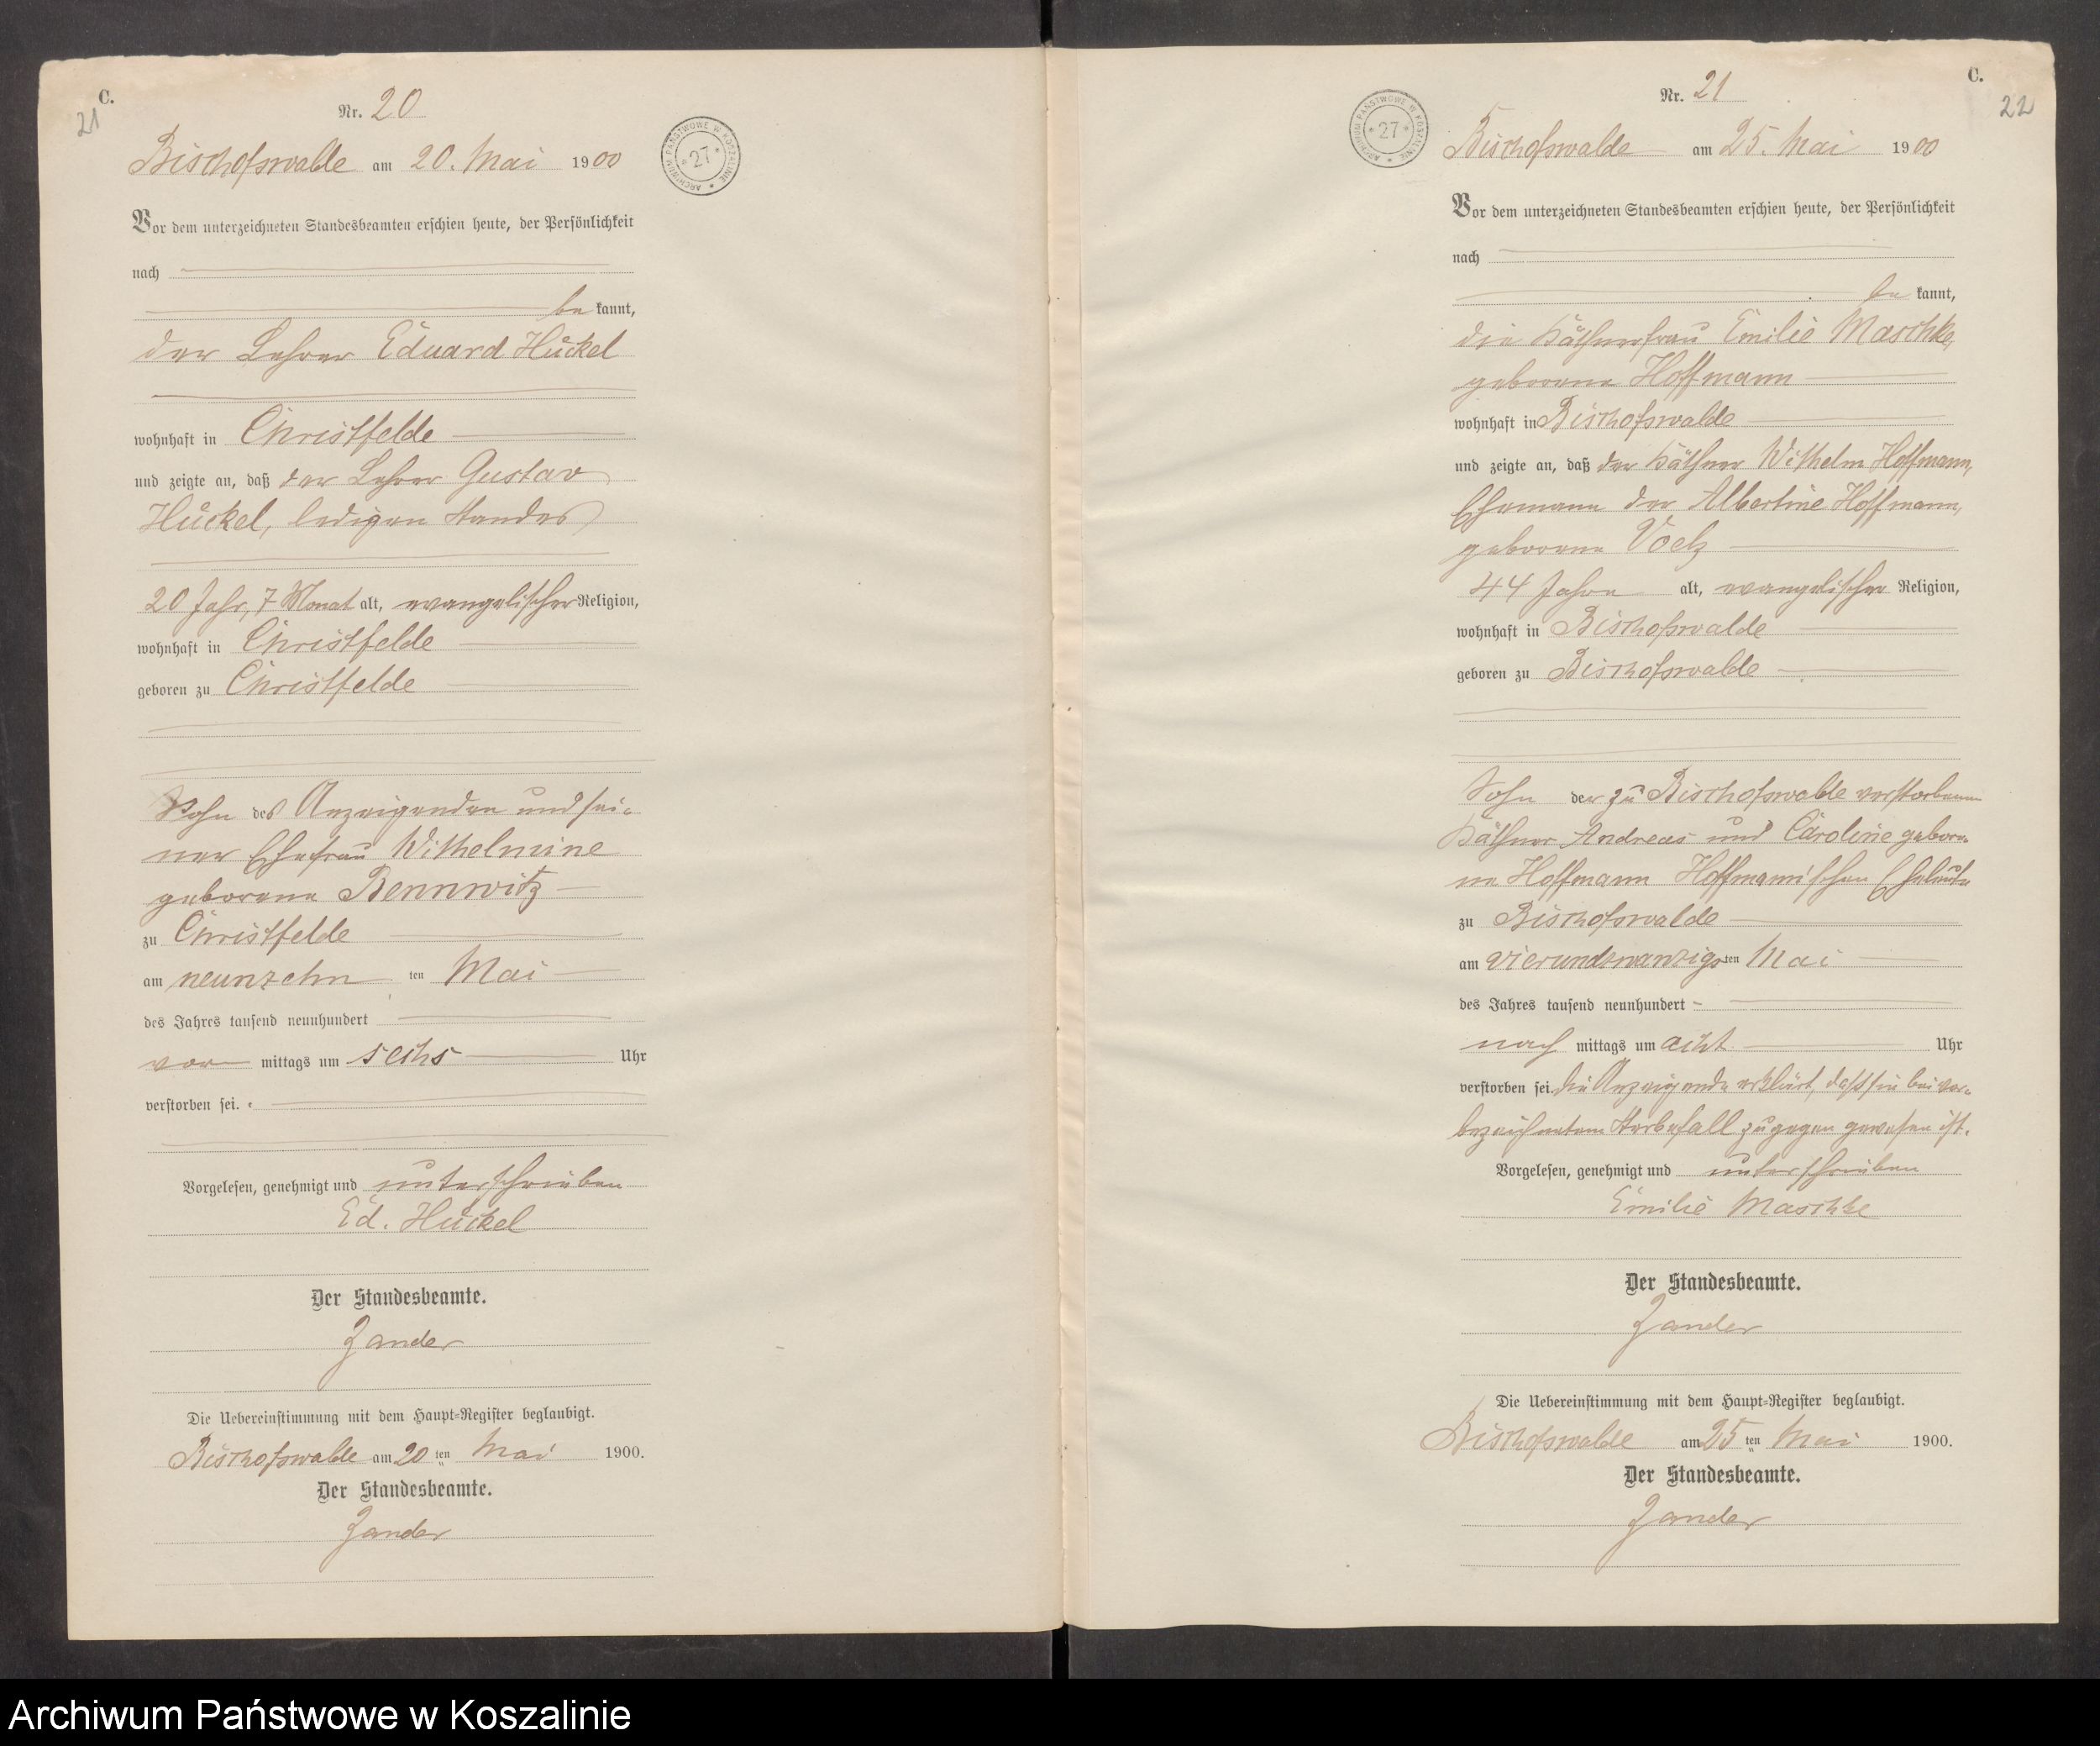 C.
21
Nr. 20
Bischofswalde am 20. Mai 1900
ARCHIWUM PAŃSTWOWE W KOSZALINIE * 27 *
Vor dem unterzeichneten Standesbeamten erschien heute, der Persönlichkeit
nach
be kannt,
der Lehrer Eduard Hückel
wohnhaft in Christfelde
und zeigte an, daß der Lehrer Gustav
Hückel, ledigen Standes
20 Jahr, 7 Monat alt, evangelischer Religion,
wohnhaft in Christfelde
geboren zu Christfelde
Sohn des Anzeigenden und sei-
ner Ehefrau Wilhelmine
geborene Bennwitz
zu Christfelde
am neunzehn ten Mai
des Jahres tausend neunhundert
vor mittags um sechs Uhr
verstorben sei.
Vorgelesen, genehmigt und unterschrieben
Ed. Hückel
Der Standesbeamte.
Zander
Die Uebereinstimmung mit dem Haupt-Register beglaubigt.
Bischofswalde am 20 ten Mai 1900.
Der Standesbeamte.
Zander
C.
22
Nr. 21
ARCHIWUM PAŃSTWOWE W KOSZALINIE * 27 *
Bischofswalde am 25. Mai 1900
Vor dem unterzeichneten Standesbeamten erschien heute, der Persönlichkeit
nach
be kannt,
die Käthnerfrau Emilie Maschke,
geborene Hoffmann
wohnhaft in Bischofswalde
und zeigte an, daß der Käthner Wilhelm Hoffmann,
Ehemann der Albertine Hoffmann,
geborene Voelz
44 Jahre alt, evangelischer Religion,
wohnhaft in Bischofswalde
geboren zu Bischofswalde
Sohn der zu Bischofswalde verstorbenen
Käthner Andreas und Caroline gebore-
ne Hoffmann Hoffmannischen Eheleute
zu Bischofswalde
am vierundzwanzigs ten Mai
des Jahres tausend neunhundert
nach mittags um acht Uhr
verstorben sei. Die Anzeigende erklärt, daß sie bei vor-
bezeichnetem Sterbefall zugegen gewesen ist.
Vorgelesen, genehmigt und unterschrieben
Emilie Maschke
Der Standesbeamte.
Zander
Die Uebereinstimmung mit dem Haupt-Register beglaubigt.
Bischofswalde am 25 ten Mai 1900.
Der Standesbeamte.
Zander
Archiwum Państwowe w Koszalinie